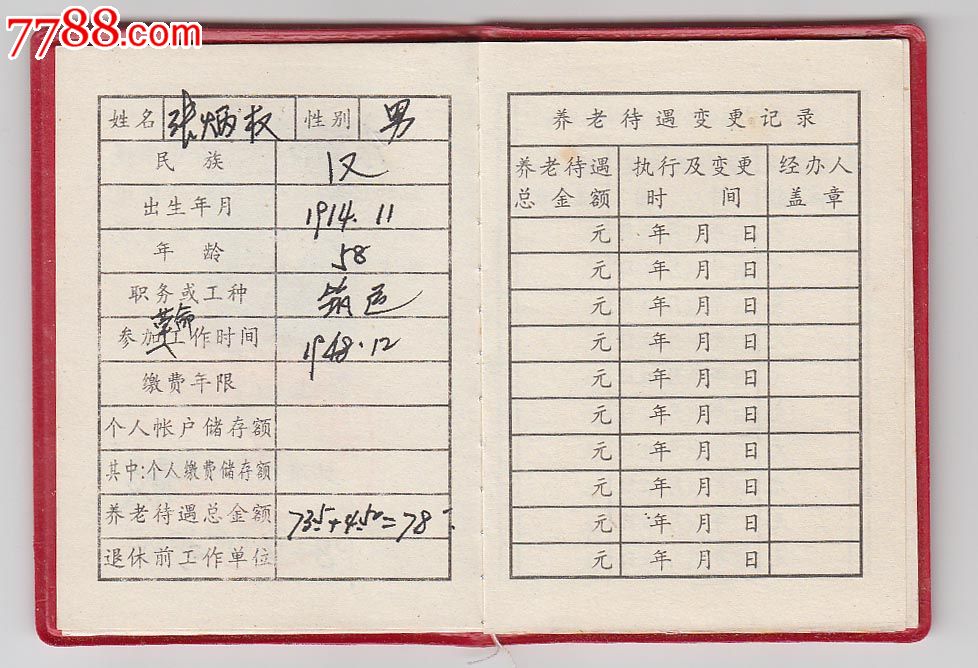 7788.com
姓名 张炳权 性别 男
民族 汉
出生年月 1914.11
年龄 58
职务或工种
革命
参加工作时间 1948.12
缴费年限
个人帐户储存额
其中:个人缴费储存额
养老待遇总金额 73.5+4.50=78
退休前工作单位
养老待遇变更记录
养老待遇总金额 执行及变更时间 经办人盖章
元 年 月 日
元 年 月 日
元 年 月 日
元 年 月 日
元 年 月 日
元 年 月 日
元 年 月 日
元 年 月 日
元 年 月 日
元 年 月 日